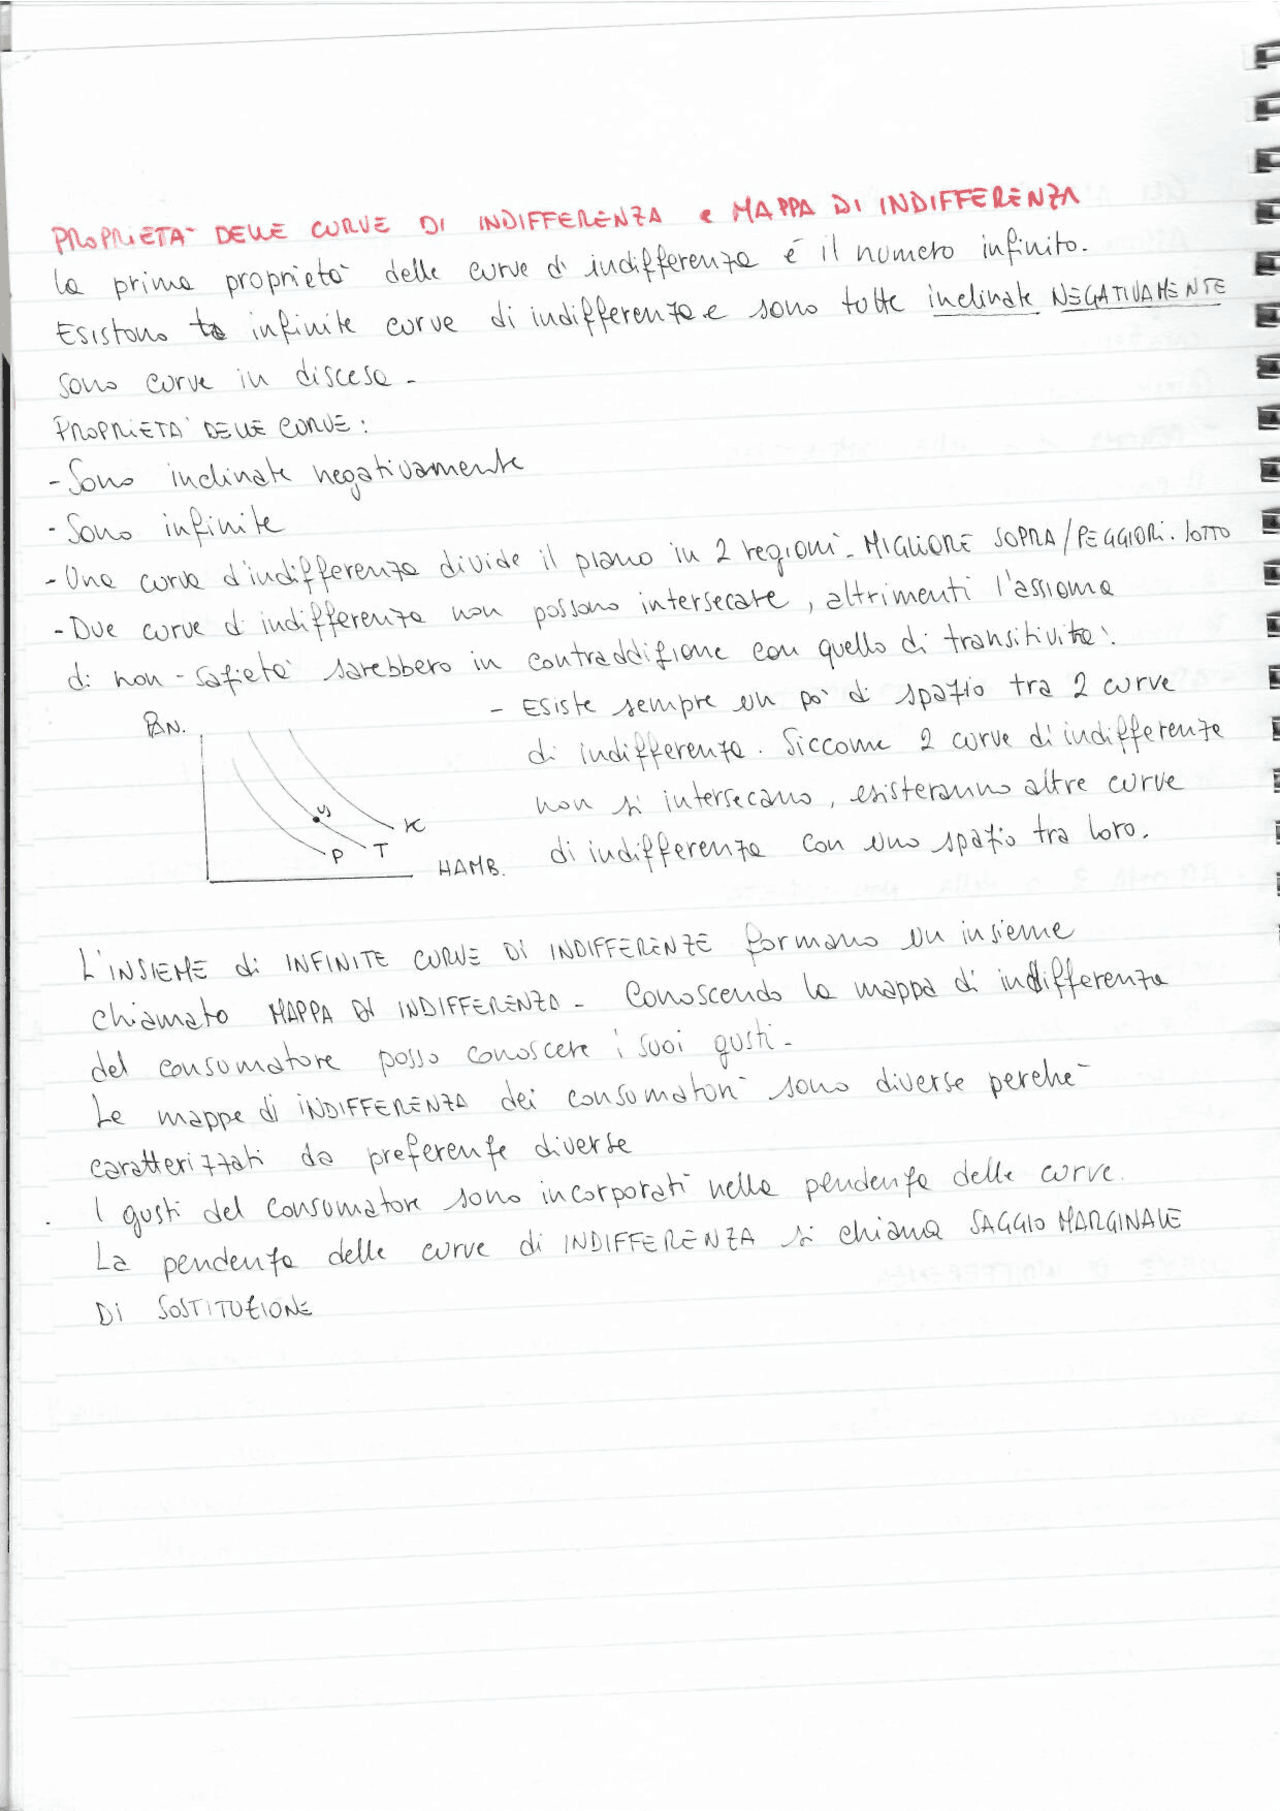 PROPRIETA' DELLE CURVE DI INDIFFERENZA e MAPPA DI INDIFFERENZA
la prima proprietà delle curve di indifferenza é il numero infinito.
Esistono infinite curve di indifferenza e sono tutte inclinate NEGATIVAMENTE
sono curve in discesa -
PROPRIETA' DELLE CURVE:
- Sono inclinate negativamente
- Sono infinite
- Una curva d'indifferenza divide il piano in 2 regioni - MIGLIORE SOPRA/PEGGIORI. SOTTO
- Due curve di indifferenza non possono intersecare, altrimenti l'assioma
di non-sazietà sarebbero in contraddizione con quello di transitività.
PAN.
- Esiste sempre un po' di spazio tra 2 curve
di indifferenza. Siccome 2 curve di indifferenza
non si intersecano, esisteranno altre curve
di indifferenza con uno spazio tra loro.
K
P T
HAMB.
L'INSIEME di INFINITE CURVE DI INDIFFERENZE formano un insieme
chiamato MAPPA DI INDIFFERENZA - Conoscendo la mappa di indifferenza
del consumatore posso conoscere i suoi gusti -
Le mappe di INDIFFERENZA dei consumatori sono diverse perché
caratterizzati da preferenze diverse
I gusti del consumatore sono incorporati nella pendenza delle curve.
La pendenza delle curve di INDIFFERENZA si chiama SAGGIO MARGINALE
DI SOSTITUZIONE